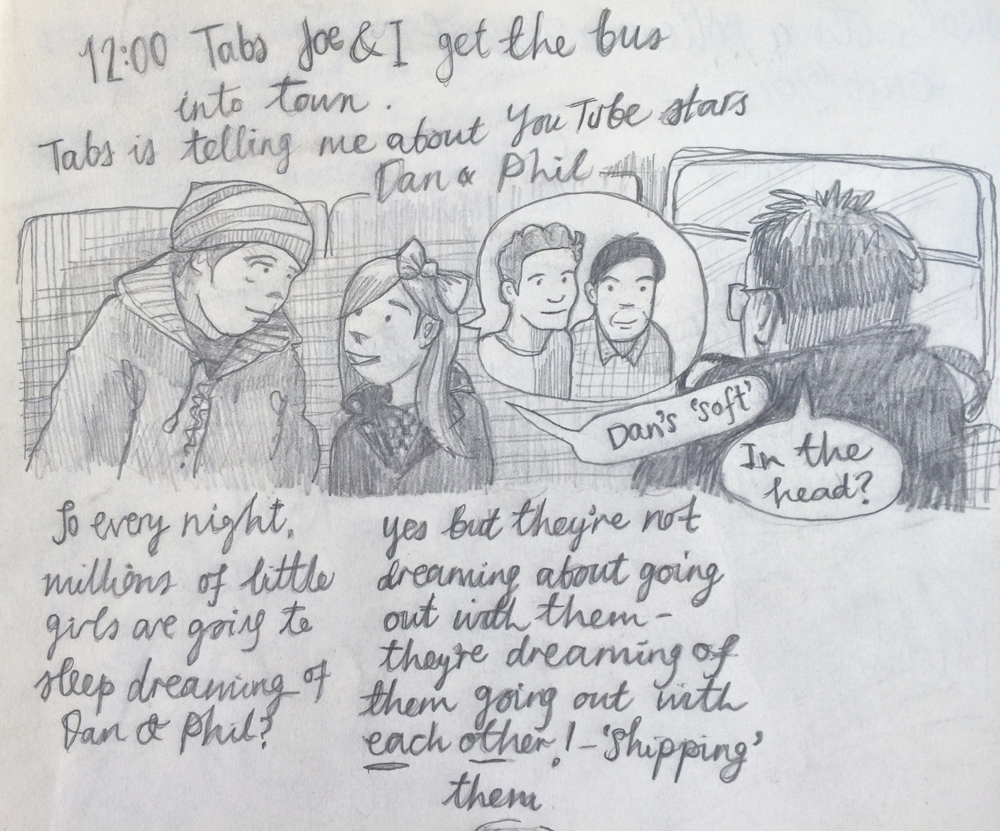 12:00 Tabs Joe & I get the bus
into town.
Tabs is telling me about YouTube stars
Dan & Phil
Dan's 'soft'
In the
head?
So every night,
millions of little
girls are going to
sleep dreaming of
Dan & Phil?
yes but they're not
dreaming about going
out with them -
they're dreaming of
them going out with
each other! - 'Shipping'
them